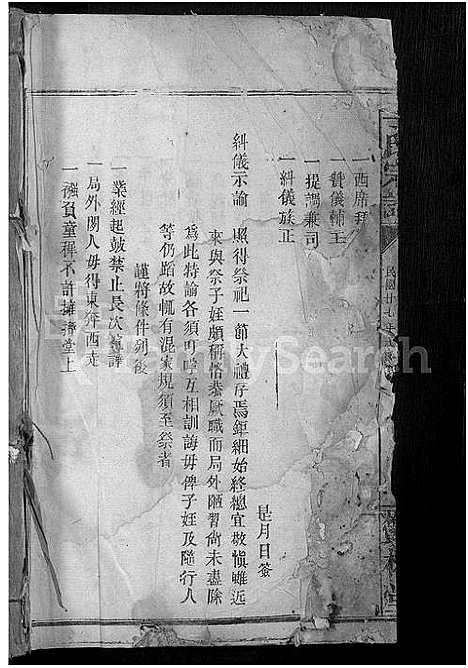 一西席拜
一贊儀輔主
一提調兼司
一糾儀族正
是月日簽
糾儀示諭 照得祭祀一節大禮存焉鉅細始終總宜敬愼雖近
來與祭子姪頗稱恪恭厥職而局外陋習尙未盡除
爲此特諭各須叮嚀互相訓誨毋俾子姪及隨行人
等仍蹈故轍有混家規須至祭者
謹將條件列後
一業經起鼓禁止長次諠譁
一局外閒人毋得東奔西走
一襁負童穉不許擁擠堂上
氏宗譜
民國廿七年